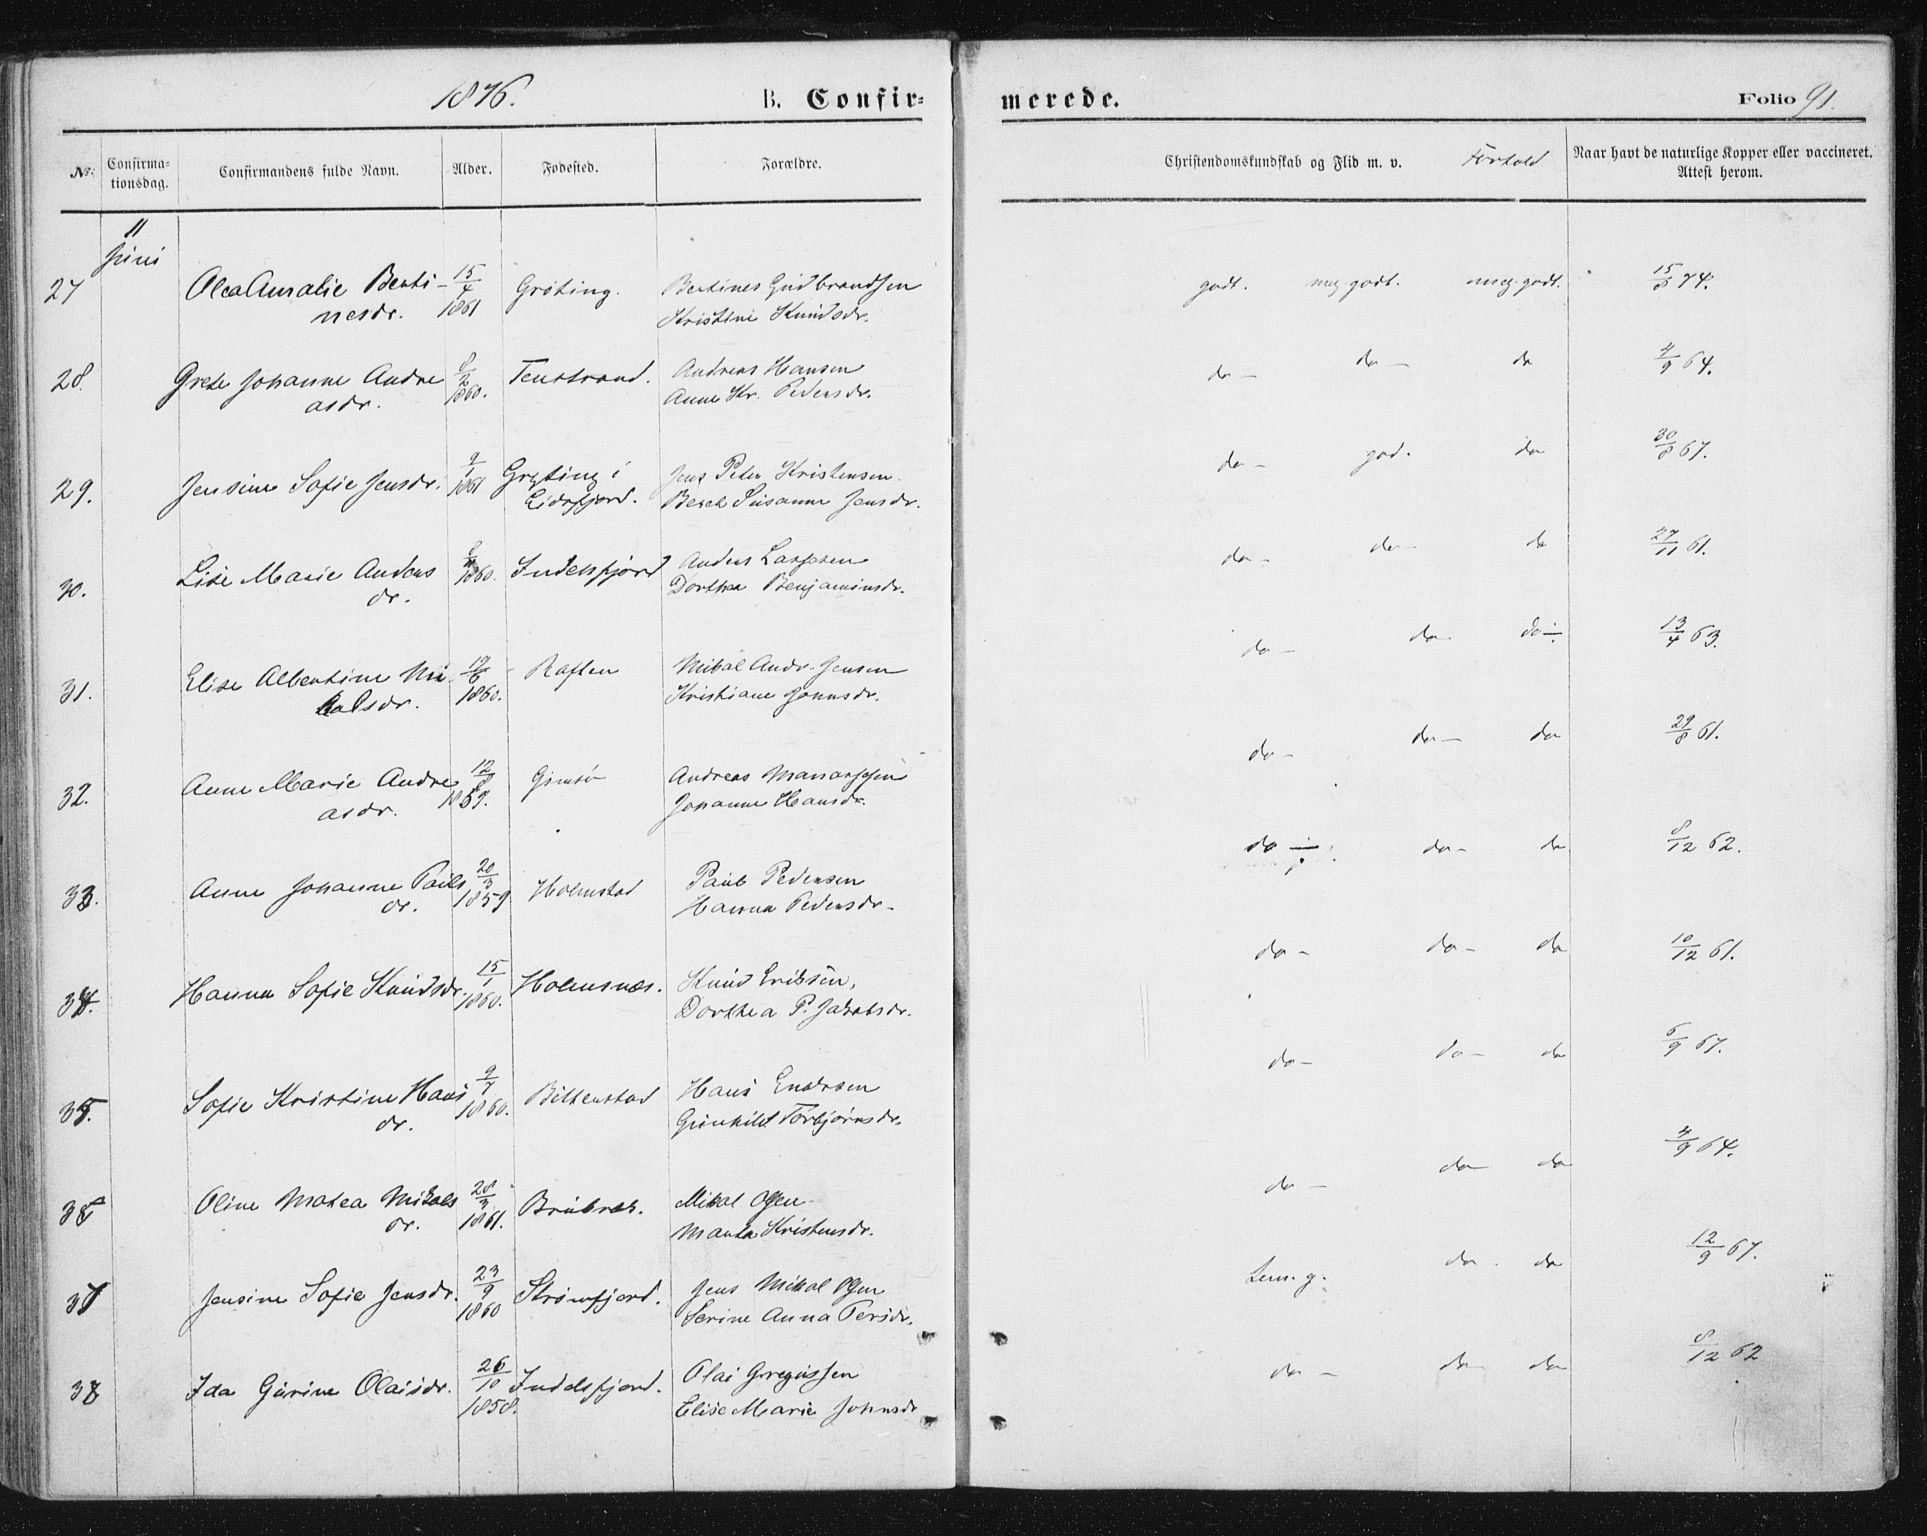 1876.
B. Confir=
merede.
Folio 91.
No.
Confirma-
tionsdag.
Confirmandens fulde Navn.
Alder.
Fødested.
Forældre.
Christendomskundskab og Flid m. v.
Forhold
Naar havt de naturlige Kopper eller vaccineret.
Attest herom.
11
Juni
27 Olea Amalie Berti-
nesdr.
15/4
1861
Grøting.
Bertines Gudbrandsen
Kristine Knudsdr.
godt. meg. godt. meg. godt.
28. Grete Johanne Andre
asdr.
8/2
1860.
Tenstrand.
Andreas Hansen
Anne Kr. Pedersdr.
do- do- do
4/9 64.
29. Jensine Sofie Jensdr.
9/1
1861
Grøting i
Eidsfjord.
Jens Peter Kristensen.
Susanne Jensdr.
do- god. do
30/8 67.
30. Lise Marie Anders
dr.
1860.
Indelsfjord
Anders Larssen
Dorthea Benjaminsdr.
do- do- do
27/11 61.
31. Elise Albertine Mi
kalsdr.
1860.
Raften
Mikal Andr. Jensen
Kristiane Johnsdr.
do- do- do
13/4 63.
32. Anne Marie Andre
asdr.
1859.
Gimsø
Andreas
Johanne Hansdr.
do- do- do
29/8 61.
33. Anne Johanne Pauls
dr.
20/3
1859
Holmstad
Paul Pedersen
Hanna Pedersdr.
do do- do
8/12 62.
34. Hanna Sofie Knudsdr.
15/1
1860.
Holmsnæs.
Knud Eriksen,
Dorthea P. Jakobsdr.
do- do- do
10/12 61.
35. Sofie Kristine Hans
dr.
9/7
1860.
Bitterstad
Hans Endresen
Gunhild Torbjørnsdr.
do- do- do
6/9 67.
Oline Matea Mikals
dr.
28/3
1861.
Mikal Olsen
Kristensdr.
do- do do
4/9 64.
37 Jensine Sofie Jensdr.
23/9
1860
Strømfjord.
Jens Mikal Olsen
Serine Anna Persdr.
Tem. g. do. do
12/9 67.
38 Ida Gurine Olaisdr.
26/10
1858.
Indelsfjord.
Olai Gregussen
Elise Marie Johnsdr
do- do- do
8/12 62